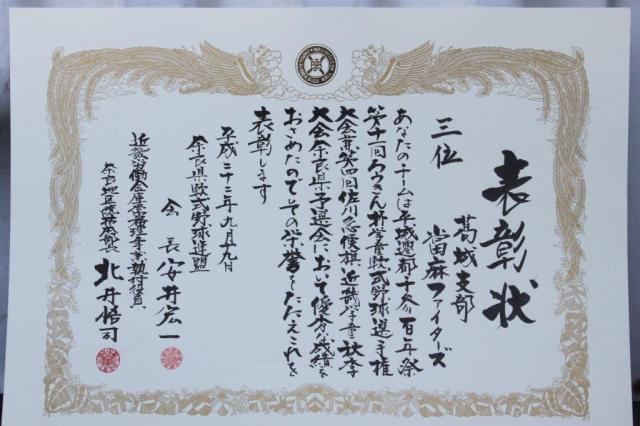 表彰状
葛城支部
當麻ファイターズ
三位
あなたのチームは平城遷都千参百年祭
第十一回ろうきん杯学童軟式野球選手権
大会兼第四回佐川急便旗近畿学童秋季
大会奈良県予選会において優秀な成績を
おさめたのでその栄誉をたたえこれを
表彰します
平成二十二年九月十九日
奈良県軟式野球連盟
会長 安井宏一
近畿労働金庫
奈良地区統括本部長 北井